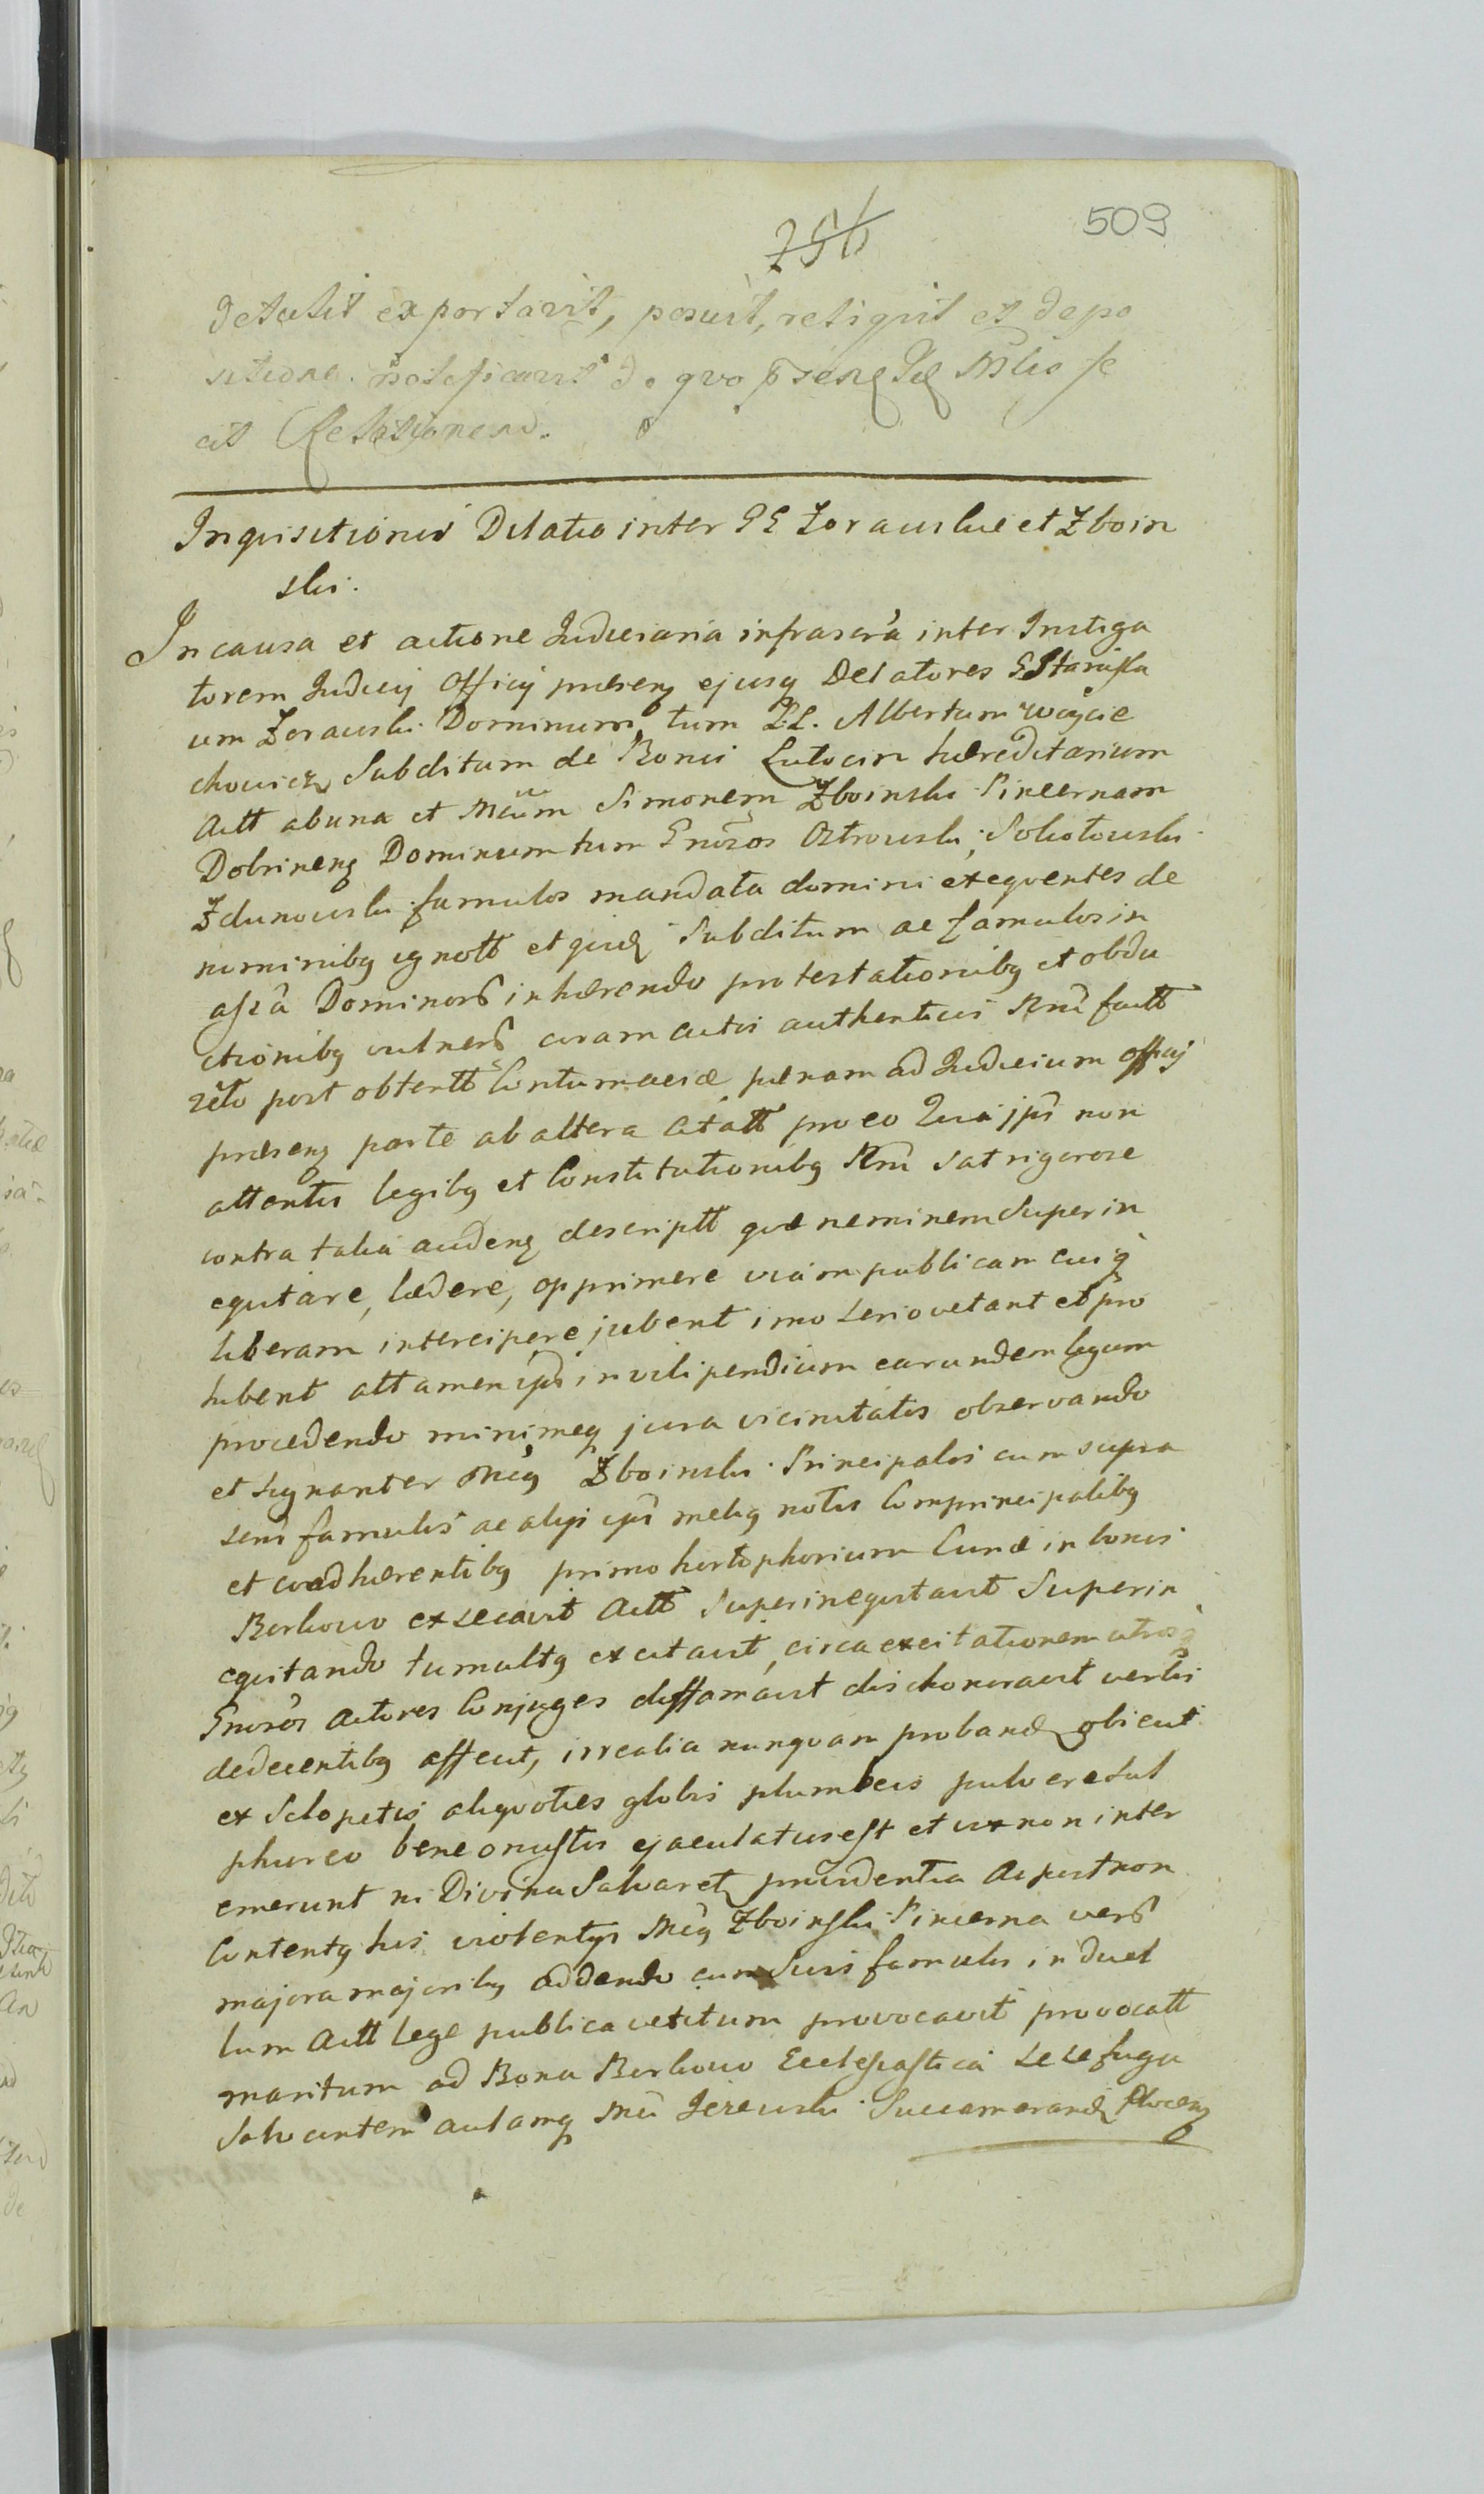 509
256
detulit exportavit, posuit, reliquit et depo
sitione notificavit de quo
cit Relationem.
Inquisitionis Dilatio inter GG Zorawskie et Zboin
ski.
In causa et actione Judiciaria infrascrã inter Instiga
torem Judicij Officij præseng ejusq Delatores G Stanisla
um Zorawski Dominum tum LL. Albertum Woycie
chowicz Subditum de Bonis Lutocin hæreditarium
Actt ab una et Mcum Simonem Zboinski Pincernam
Dobrineng Dominum tum Gnosos Ostrowski, Sokolowski
Zdunowski famulos mandata domini exeqventes de
nominibq ignott et quidz Subditum ac famulos in
asscã Dominorz inhærendo protestationibq et obdu
ctionibq vulnerz coram actis authenticis Rni factt
rēlo post obtentt Contumaciæ pænam ad Judicium officij
præseng parte ab altera Citatt pro eo Quia jpi non
attentis legibq et Constitutionibq Rni sat rigorose
contra talia audeng descriptt qvæ neminem Superin
eqvitare, lædere, opprimere viam publicam cuiq
liberam intercipere jubent imo serio vetant et pro
hibent attamen ipsi in vilipendium earundem legum
procedendo minimeq jura vicinitatis observando
et signanter Mcus Zboinski Principalis cum supra
seris famulis ac alijs ipsi melig notis Comprincipalibq
et coadhærentibq primo hortiphorium Curiæ in bonis
Borkowo exsecavit Actt Superineqvitavit Superin
eqvitando tumultq excitavit, circa excitationem utrosq
Gnosos Actores Conjuges diffamavit dishonoravit verbis
dedecentibq affecit, irrealia nunqvam proband obiecit
ex Sclopetis aliqvoties globis plumbeis pulvere sul
phureo bene onustis ejaculatus est et vix non inter
emerunt ni Divina Salvaret providentia Ac post non
Contentq his violentijs Mcus Zboinski Pincerna verz
majora majoribq addendo cum Suis famulis in duel
lum Actt lege publica vetitum provocavit provocatt
maritum ad Bona Borkowo Ecclesiastica sese fuga
Salvantem aulamq Mci Jezewski Succamerarid Ploceng